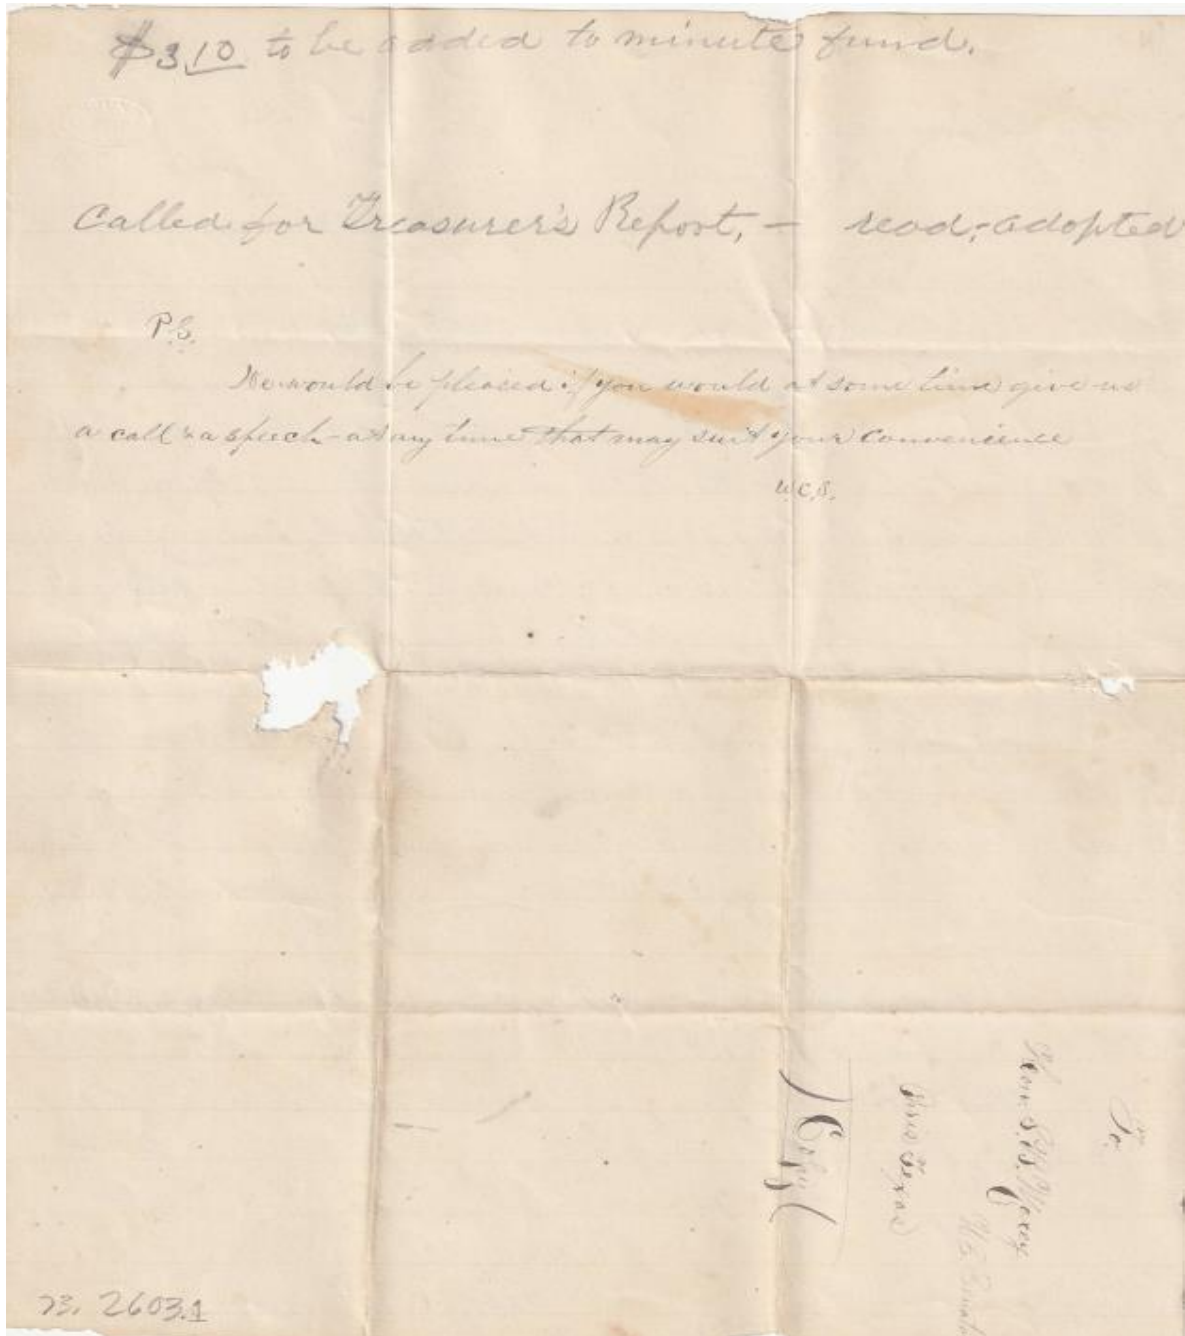 $3.10 to be added to minute fund.
Called for Treasurer's Report, – read; adopted
P.S.
We would be pleased if you would at some time give us
a call & a speech – at any time that may suit your convenience
W.C.S.
To
Hon. S.B. Maxey
U.S. Senate
Paris Texas
(Copy)
73. 2603.1